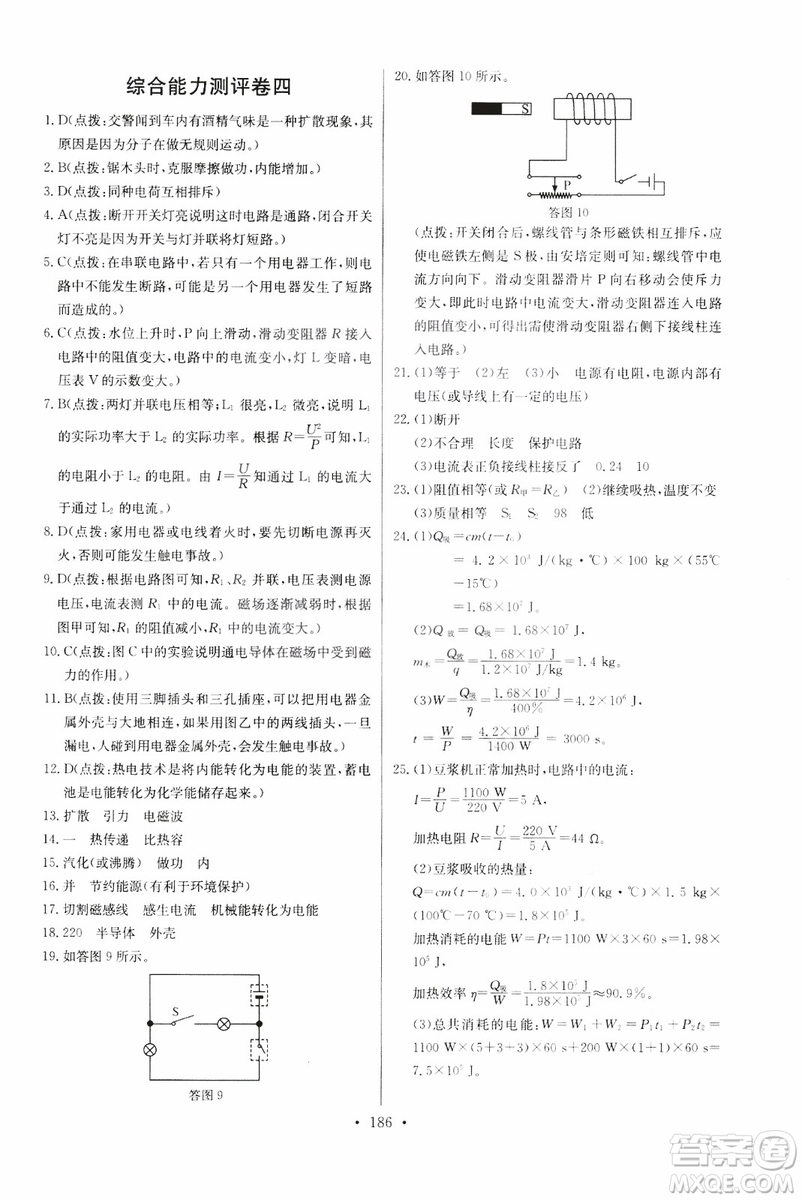 综合能力测评卷四
1. D(点拨:交警闻到车内有酒精气味是一种扩散现象,其
原因是因为分子在做无规则运动。)
2. B(点拨:锯木头时,克服摩擦做功,内能增加。)
3. D(点拨:同种电荷互相排斥)
4. A(点拨:断开开关灯亮说明这时电路是通路,闭合开关
灯不亮是因为开关与灯并联将灯短路。)
5. C(点拨:在串联电路中,若只有一个用电器工作,则电
路中不能发生断路,只可能是另一个用电器发生短路
而造成的。)
6. C(点拨:水位上升时,P 向上滑动,滑动变阻器 R 接入
电路中的阻值变大,电路中电流变小,灯 L 变暗,电
压表 V 的示数变大。)
7. B(点拨:两灯并联电压相等;L₁ 很亮,L₂ 微亮,说明 L₁
的实际功率大于 L₂ 的实际功率。根据 R=U²/P可知,L₁
的电阻小于 L₂ 的电阻。由 I=U/R知,L₁ 中的电流大于
L₂ 的电流。)
8. D(点拨:家用电器或电线着火时,要先切断电源再灭
火,否则可能发生触电事故。)
9. D(点拨:根据电路图可知,R₁、R₂ 并联,电压表测电源
电压,电流表测 R₁ 中的电流。磁场逐渐减弱时,根据
图甲可知,R₁ 的阻值减小,R₁ 中的电流变大。)
10. C(点拨:图 C 中的实验说明通电导体在磁场中受到磁
力的作用。)
11. B(点拨:使用三脚插头和三孔插座,可以把用电器金
属外壳与大地相连,如果用图乙中的两线插头,一旦
漏电,人碰到用电器金属外壳,会发生触电事故。)
12. D(点拨:热电技术是将内能转化为电能的装置,蓄电
池是电能转化为化学能储存起来。)
13. 扩散 引力 电磁波
14. 一 热传递 比热容
15. 汽化(或沸腾) 做功 内
16. 并 节约能源(有利于环境保护)
17. 切割磁感线 感生电流 机械能转化为电能
18. 220 半导体 外壳
19. 如答图 9 所示。
S
答图 9
20. 如答图 10 所示。
S
P
答图 10
(点拨:开关闭合后,螺线管与条形磁铁互相排斥,应
使电磁铁左侧是 S 极,由安培定则可知,螺线管中电
流方向向下。滑动变阻器滑片 P 向右移动会使斥力
变大,即此时电路中电流变大,滑动变阻器连入电路
的阻值变小,可得出需使滑动变阻器右侧下接线柱连
入电路。)
21. (1)等于 (2)左 (3)小 电源有电阻,电源内部有
电压(或导线上有一定的电压)
22. (1)断开
(2)不合理 长度 保护电路
(3)电流表正负接线柱接反了 0.24 10
23. (1)阻值相等(或 R甲=R乙) (2)继续吸热,温度不变
(3)质量相等 S₁ S₂ 98 低
24. (1)Q吸=cm(t-t₀)
=4.2×10³ J/(kg·℃)×100 kg×(55℃
-15℃)
=1.68×10⁷ J。
(2)Q放=Q吸=1.68×10⁷ J,
m木=Q放/q=1.68×10⁷ J/1.2×10⁷ J/kg=1.4 kg。
(3)W=Q吸/η=1.68×10⁷ J/400%=4.2×10⁶ J,
t=W/P=4.2×10⁶ J/1400 W=3000 s。
25. (1)豆浆机正常加热时,电路中的电流:
I=P/U=1100 W/220 V=5 A,
加热电阻 R=U/I=220 V/5 A=44 Ω。
(2)豆浆吸收的热量:
Q=cm(t-t₀)=4.0×10³ J/(kg·℃)×1.5 kg×
(100℃-70℃)=1.8×10⁵ J,
加热消耗的电能 W=Pt=1100 W×3×60 s=1.98×
10⁵ J,
加热效率 η=Q吸/W=1.8×10⁵ J/1.98×10⁵ J≈90.9%。
(3)总共消耗的电能:W=W₁+W₂=P₁t₁+P₂t₂=
1100 W×(5+3+3)×60 s+150 W×(1+1+1)×60 s=
7.5×10⁵ J。
• 186 •
答案圈
MXQE.COM